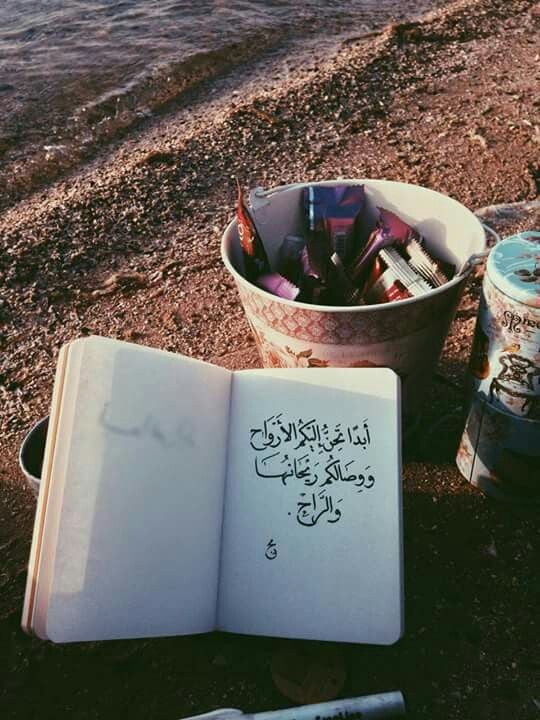 أَبَدًا تَحِنُّ إِلَيْكُمُ الأَرْوَاحُ
وَوِصَالُكُم رَيْحَانُهَا
وَالرَّاحُ.